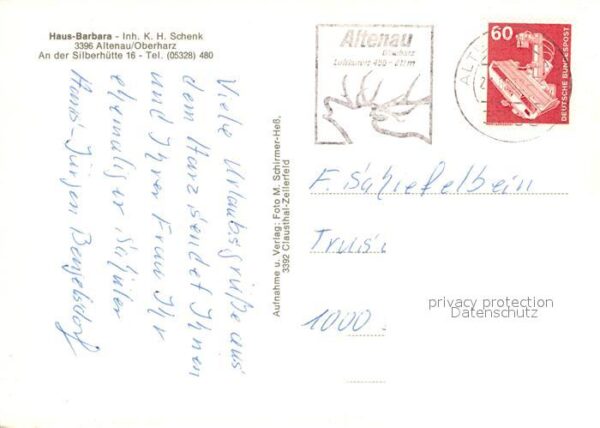 Haus-Barbara - Inh. K. H. Schenk
3396 Altenau/Oberharz
An der Silberhütte 16 - Tel. (05328) 480
Viele Urlaubsgrüße aus
dem Harz sendet Ihnen
und Ihrer Frau Ihr
ehemaliger Schüler
Hans-Jürgen Bengelsdorf
Aufnahme u. Verlag: Foto M. Schirmer-Heß,
3392 Clausthal-Zellerfeld
Altenau
Oberharz
60
DEUTSCHE BUNDESPOST
F. Schiefelbein
1000
privacy protection
Datenschutz